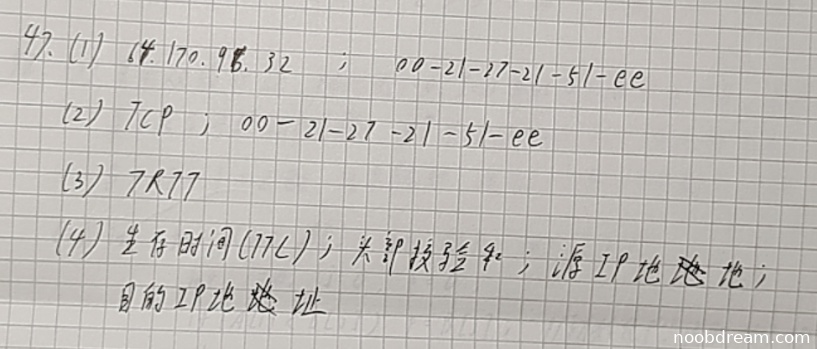 47. (1) 64.170.98.32 ; 00-21-27-21-51-ee
(2) TCP ; 00-21-27-21-51-ee
(3) 7RTT
(4) 生存时间(TTL) ; 头部校验和 ; 源IP地地 ;
目的IP地址
noobdream.com